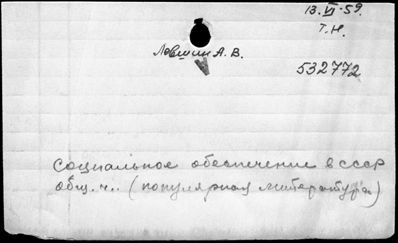 13.VI.59.
Т.Н.
Левшин А. В.
532772
Социальное обеспечение в СССР
общ. ч.. (популярная литература)